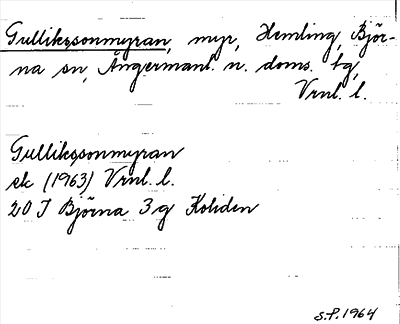 Gullikssonmyran, myr, Hemling, Björ-
na sn, Ångermanl. n. doms. tg,
Vrnl. l.
Gullikssonmyran
ek (1963) Vrnl. l.
20 I Björna 3 g Koliden
S.P. 1964